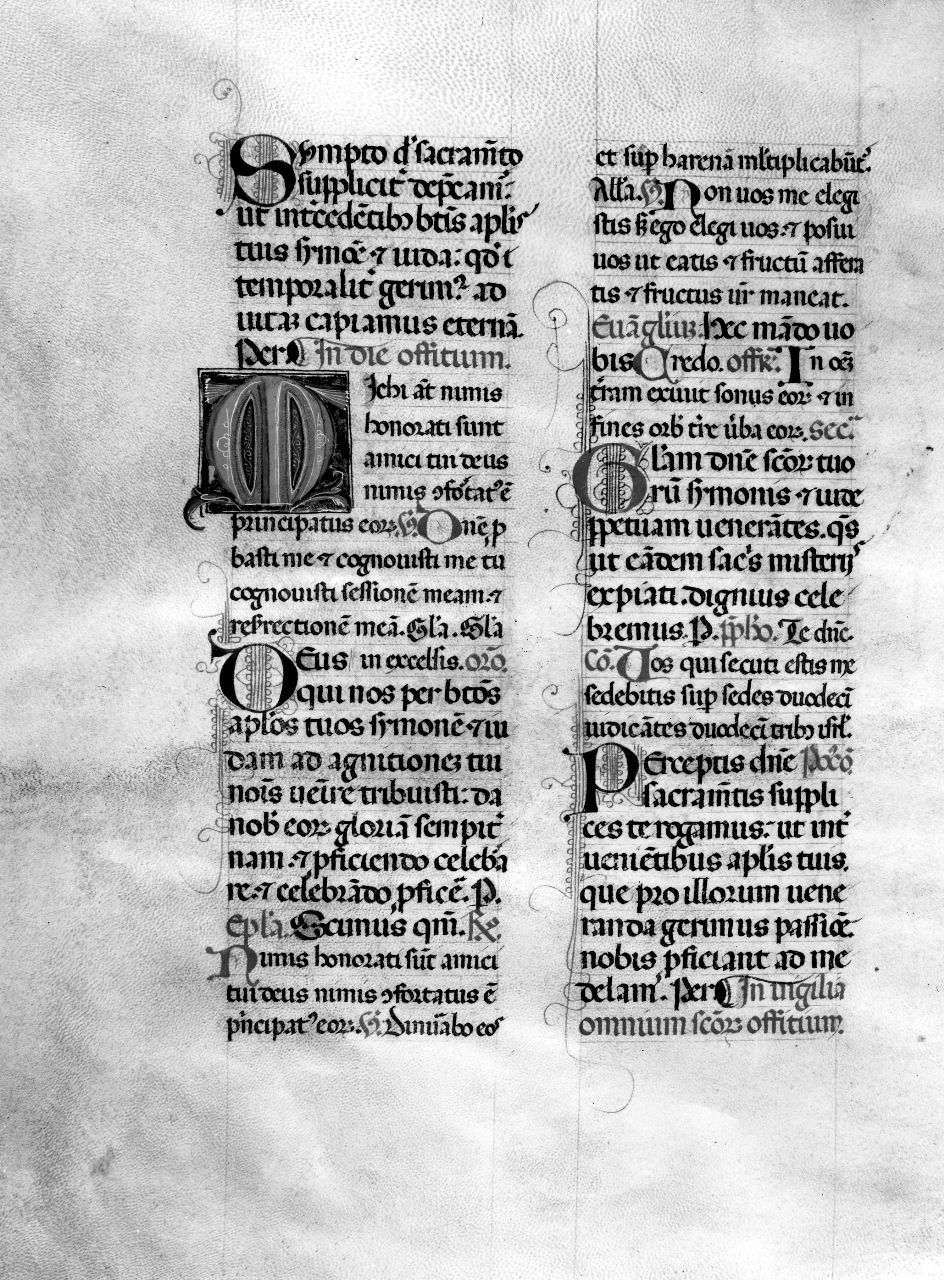 Sumpto dn̄e sacram̄to
suppliciter dep̄cam̄ᷣ:
ut int̄cedētibꝫ btīs aplīs
tuis symoē ⁊ iuda: qd̄ t
temporalit̄ gerimꝰ ad
uitaꝫ capiamus eternā.
Per In die offitium.
Michi aūt nimis
honorati sunt
amici tui deus
nimis ꝯfortatꝰ ē
principatus eoꝝ. V̄. Dn̄e p
basti me ⁊ cognouisti me tu
cognouisti sessionē meam. ⁊
resrectionē meā. Gl̄a. Gl̄a
in excelsis. or̄o.
Deus qui nos per btōs
apl̄os tuos symonē ⁊ iu
dam ad agnitioneꝫ tui
noīs ueīre tribuisti: da
nob̄ eoꝝ gloriā sempit̄
nam. ⁊ ꝓficiendo celebra
re. ⁊ celebrādo ꝓficē. P.
Epl̄a. Scimus qm̄. R̄.
Nimis honorati sūt amici
tui deus nimis ꝯfortatus ē
p̄ncipatꝰ eoꝝ. V̄. Dinūabo eos
et sup̄ harenā ml̄tiplicabūt᷑.
All̄a. V̄. Non uos me elegi
stis sꝫ ego elegi uos. ⁊ posui
uos ut eatis ⁊ fructū affera
tis ⁊ fructus ur̄ maneat.
Euāgliuꝫ. Hec mādo uo
bis Credo. offr̄. In oēꝫ
t̄ram exiuit sonus eoꝝ ⁊ in
fines orb̄ t̄re ūba eoꝝ. Sec̄.
Gl̄am dn̄e sc̄oꝝ tuo
rū symonis ⁊ iude
ꝑpetuam uenerātes. qs̄
ut eādem sac̄s misterijs
expiati: dignius cele
bremus. P. p̄pħo. Te dn̄e.
Cō. Uos qui secuti estis me
sedebitis sup̄ sedes duodecī
iudicātes duodecī tribꝫ isrl̄.
Perceptis dn̄e Poc̄ō
sacram̄tis suppli
ces te rogamus: ut int̄
uenientibus apl̄is tuis.
que pro illorum uene
randa gerimus passiōe.
nobis ꝓficiant ad me
delam. Per In uigilia
omnium sc̄oꝝ offitium.